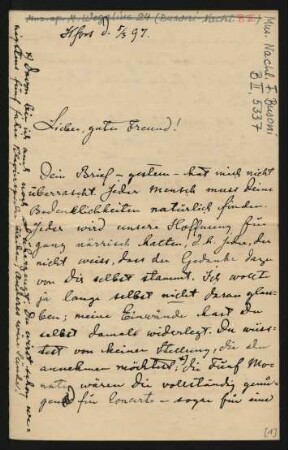 Mus. ep. M. Wegelius 24 (Busoni-Nachl. B II)
Mus. Nachl. F. Busoni
B II 5337
Hfors D. 5/3 97.
Lieber, guter Freund!
Dein Brief – gestern – hat mich nicht
überrascht. Jeder Mensch muss Deine
Bedenklichkeiten natürlich finden.
Jeder wird unsere Hoffnung für
gang närrisch halten, d. h. Jeder, der
nicht weiss, dass der Gedanke dazu
von Dir selbst stammt. Ich wollte
ja lange selbst nicht daran glau-
ben; meine Einwände hast Du
selbst damals widerlegt. Du wüss-
test von keiner Stellung, die Du
annehmen möchtest; die fünf Mo-
nate wären Dir vollständig genü-
gend für Concerte – sogar für eine
x) Davon bin ich auch noch überzeugt. Du wirst schon we-
nigstens fünf Jahre
[1]